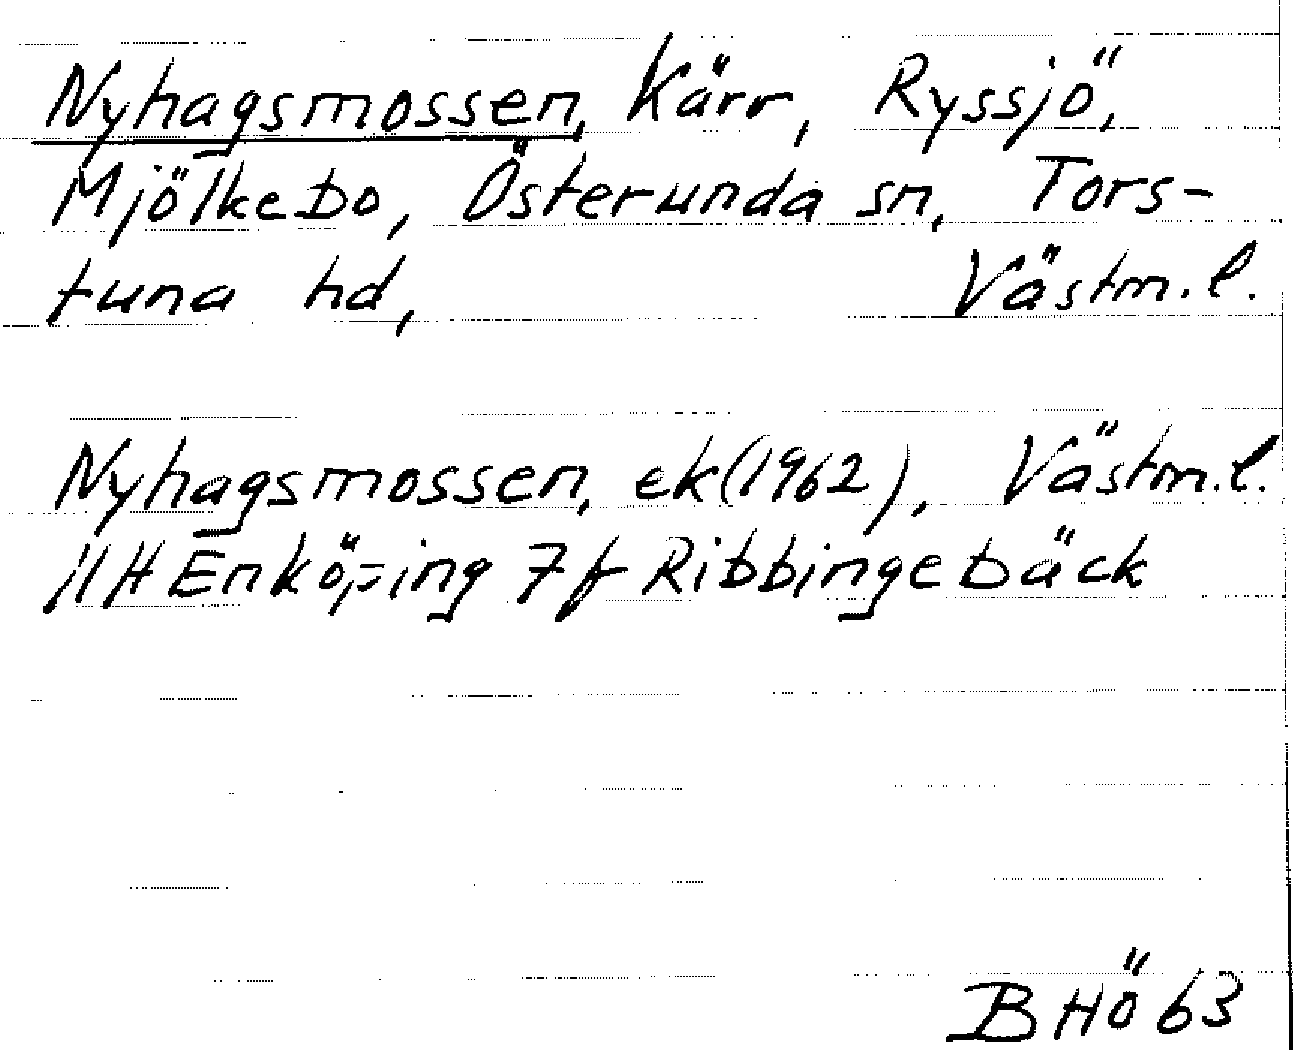 Nyhagsmossen, Kärr, Ryssjö,
Mjölkebo, Österunda sn, Tors-
tuna hd, Västm.l.
Nyhagsmossen, ek(1962), Västm.l.
11H Enköping 7f Ribbingebäck
BHÖ 63